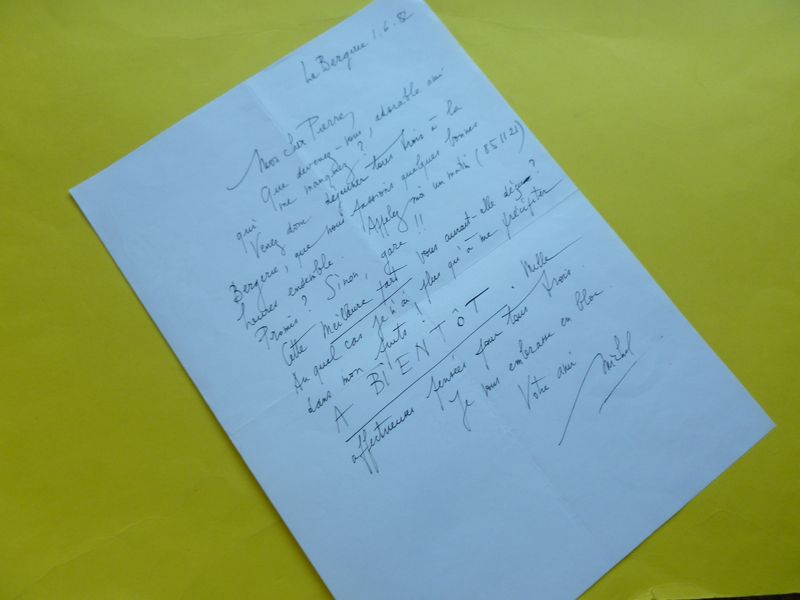 La Bergerie 1.6.82
Mon cher Pierre,
Que devenez-vous, adorable ami
qui me manquez ?
Venez donc déjeuner tous trois à la
Bergerie, que nous passions quelques bonnes
heures ensemble. Appelez moi un matin (851121)
Promis ? Sinon, gare !!
Cette Meilleure part vous aurait-elle déçu ?
Au quel cas je n'ai plus qu'à me précipiter
dans mon puits !
A BIENTÔT. Mille
affectueuses pensées pour tous trois.
Je vous embrasse en bloc.
Votre ami
Michel